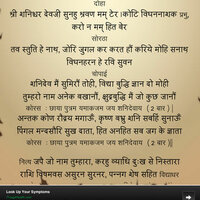 दोहा
श्री शनिश्चर देवजी सुनहु श्रवण मम् टेर।कोटि विघननाशक प्रभु,
करो न मम् हित बेर
सोरठा
तव स्तुति हे नाथ, जोरि जुगल कर करत हौं करिये मोहि सनाथ्
विघनहरन हे रवि सुवन
चोपाई
शनिदेव मैं सुमिरौं तोही, विद्या बुद्धि ज्ञान दो मोही
तुम्हरो नाम अनेक बखानौं, क्षुद्रबुद्धि मैं जो कुछ जानौं
कोरस : छाया पुत्रम यमाकजम जय शनिदेवाय ( 2 बार ) |
अन्तक कोण रौद्रय मगाऊँ, कृष्ण बभ्रु शनि सबहिं सुनाऊँ
पिंगल मन्दसौरि सुख दाता, हित अनहित सब जग के ज्ञाता
कोरस : छाया पुत्रम यमाकजम जय शनिदेवाय ( 2 बार )|
नित्य जपै जो नाम तुम्हारा, करहु व्याधि दुःख से निस्तारा
राशि विषमवस असुरन सुरनर, पन्नग शेष सहित विद्याधर
Look Up Your Symptoms